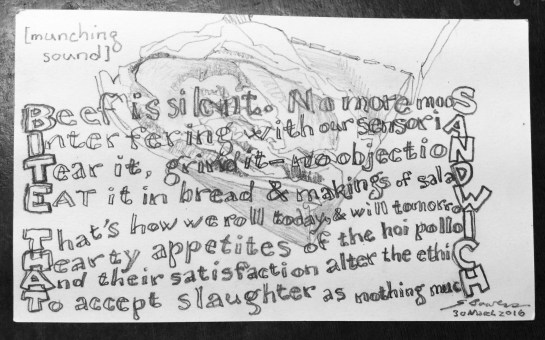 [munching
sound]
Beef is silent. No more mooS
Interfering with our sensoriA
Tear it, grind it - No objectioN
EAT it in bread & makings of salaD
That's how we roll today, & will tomorroW
Hearty appetites of the hoi polloI
And their satisfaction alter the ethiC
To accept slaughter as nothing mucH
30 March 2016